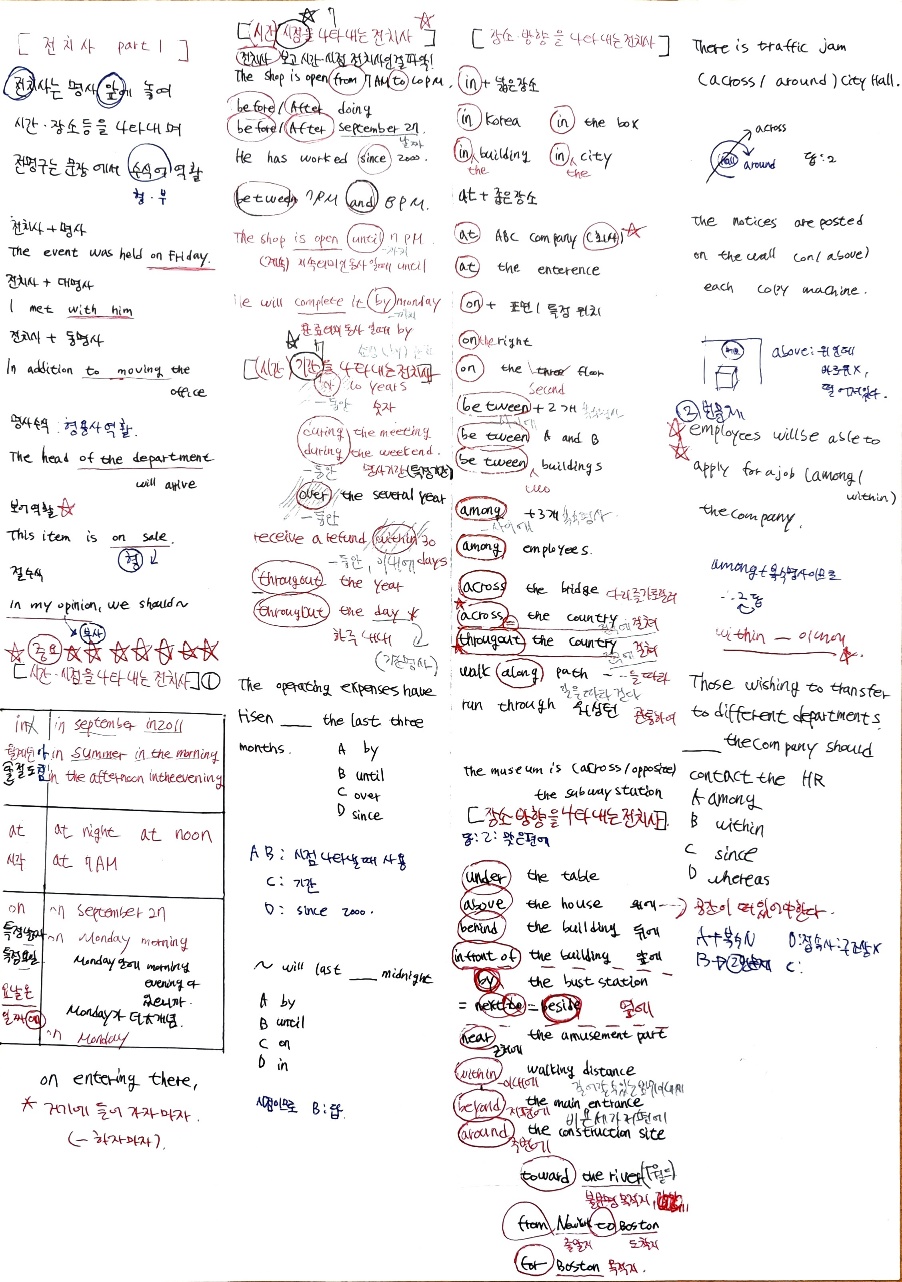 [ 전치사 part 1 ]
전치사는 명사 앞에 놓여
시간·장소등을 나타내며
전명구는 문장에서 수식어 역할
형·부
전치사 + 명사
The event was held on Friday.
전치사 + 대명사
I met with him
전치사 + 동명사
In addition to moving the
office
명사수식 : 형용사역할.
The head of the department
will arive
보어역할 ☆
This item is on sale.
형
절수식
in my opinion, we should~
부사
☆ 중요 ☆☆☆☆☆☆☆
[시간·시점을 나타내는 전치사] ①
in
in september in 2011
in summer in the morning
in the afternoon in the evening
at
시각
at night at noon
at 7AM
on
특정날짜
특정요일
요날은
일짜에
on September 27
on Monday morning
Monday 앞에 morning
evening 이
Monday가 더 큰 개념.
on Monday
on entering there,
* 거기에 들어 가자마자.
(~ 하자마자).
[(시간) 시점을 나타내는 전치사]
전치사 보고 시간·시점 전치사인걸 파악!
The shop is open from 7AM to 6PM.
before / After doing
before / After september 27.
날짜
He has worked since 2000.
between 7PM and 8PM.
The shop is open until 7PM.
~까지
(계속) 지속의미인 동사 일때 until
He will complete it by monday
~까지
완료의미 동사 일때 by
[(시간) 기간을 나타내는 전치사]
for 10 years
~동안 숫자
during the meeting
during the weekend.
~동안 명사기간(특정기간)
over the several year
~동안
receive a refund within 30
~동안, 이내에 days
througout the year
throughut the day *
하루 내내
(기간명사)
The operating expenses have
risen ___ the last three
months.
A by
B until
C over
D since
A B : 시점 나타낼때 사용
C : 기간
D : since 2000.
~ will last ___ midnight
A by
B until
C on
D in
시점이므로 B : 답.
[장소·방향을 나타내는 전치사]
in + 넓은장소
in Korea in the box
in building in city
the the
at + 좁은장소
at ABC company (회사) ☆
at the enterence
on + 표면 / 특정 위치
on the right
on the floor
second
between + 2개 복수명사
사이에
between A and B
between buildings
two
among +3개 복수명사
~사이에
among employees.
across the bridge 다리를 가로질러
across = the country 전역에 걸쳐
througout the country 걸쳐
walk along path ~를 따라
길을 따라 걷다
run through 위싱턴 관통하여
The museum is (across/opposite)
the subway station
[장소·방향을 나타내는 전치사].
답: 2: 맞은편에
under the table
above the house 위에 --> 공간이 떠 있어야한다.
behind the building 뒤에
in front of the building 앞에
by the bust station
= next to = beside 옆에
near the amusement part
근처에
within walking distance
~이내에
beyond the main entrance
저편에
around the construction site
주변에
toward the river
불분명 목적지
from NewYork to Boston
출발지 도착지
for Boston 목적지.
There is traffic jam
(across / around) City Hall.
across
Hall around
답 : 2
The notices are posted
on the wall (on / above)
each copy machine.
above : 위쪽에
바로 위 X,
떨어져있다.
②번 문제
employees will be able to
apply for a job (among /
within)
the company.
among + 복수명사이므로
∴ 2 답
within ~ 이내에
Those wishing to transfer
to different departments
___ the company should
contact the HR
A among
B within
C since
D whereas
A + 복수N D : 접속사 : 구조상 X
C :